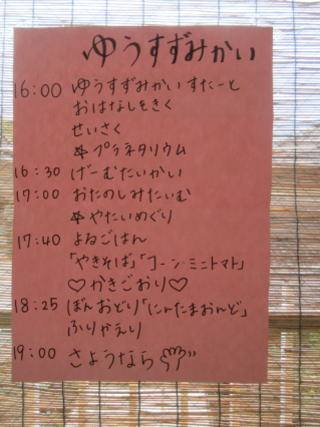 ゆうすずみかい
16:00 ゆうすずみかい すたーと
おはなしをきく
せいさく
☆プラネタリウム
16:30 げーむたいかい
17:00 おたのしみたいむ
☆やたいめぐり
17:40 よるごはん
「やきそば」「コーン・ミニトマト」
♡かきごおり♡
18:25 ぼんおどり「にんたまおんど」
ふりかえり
19:00 さようなら